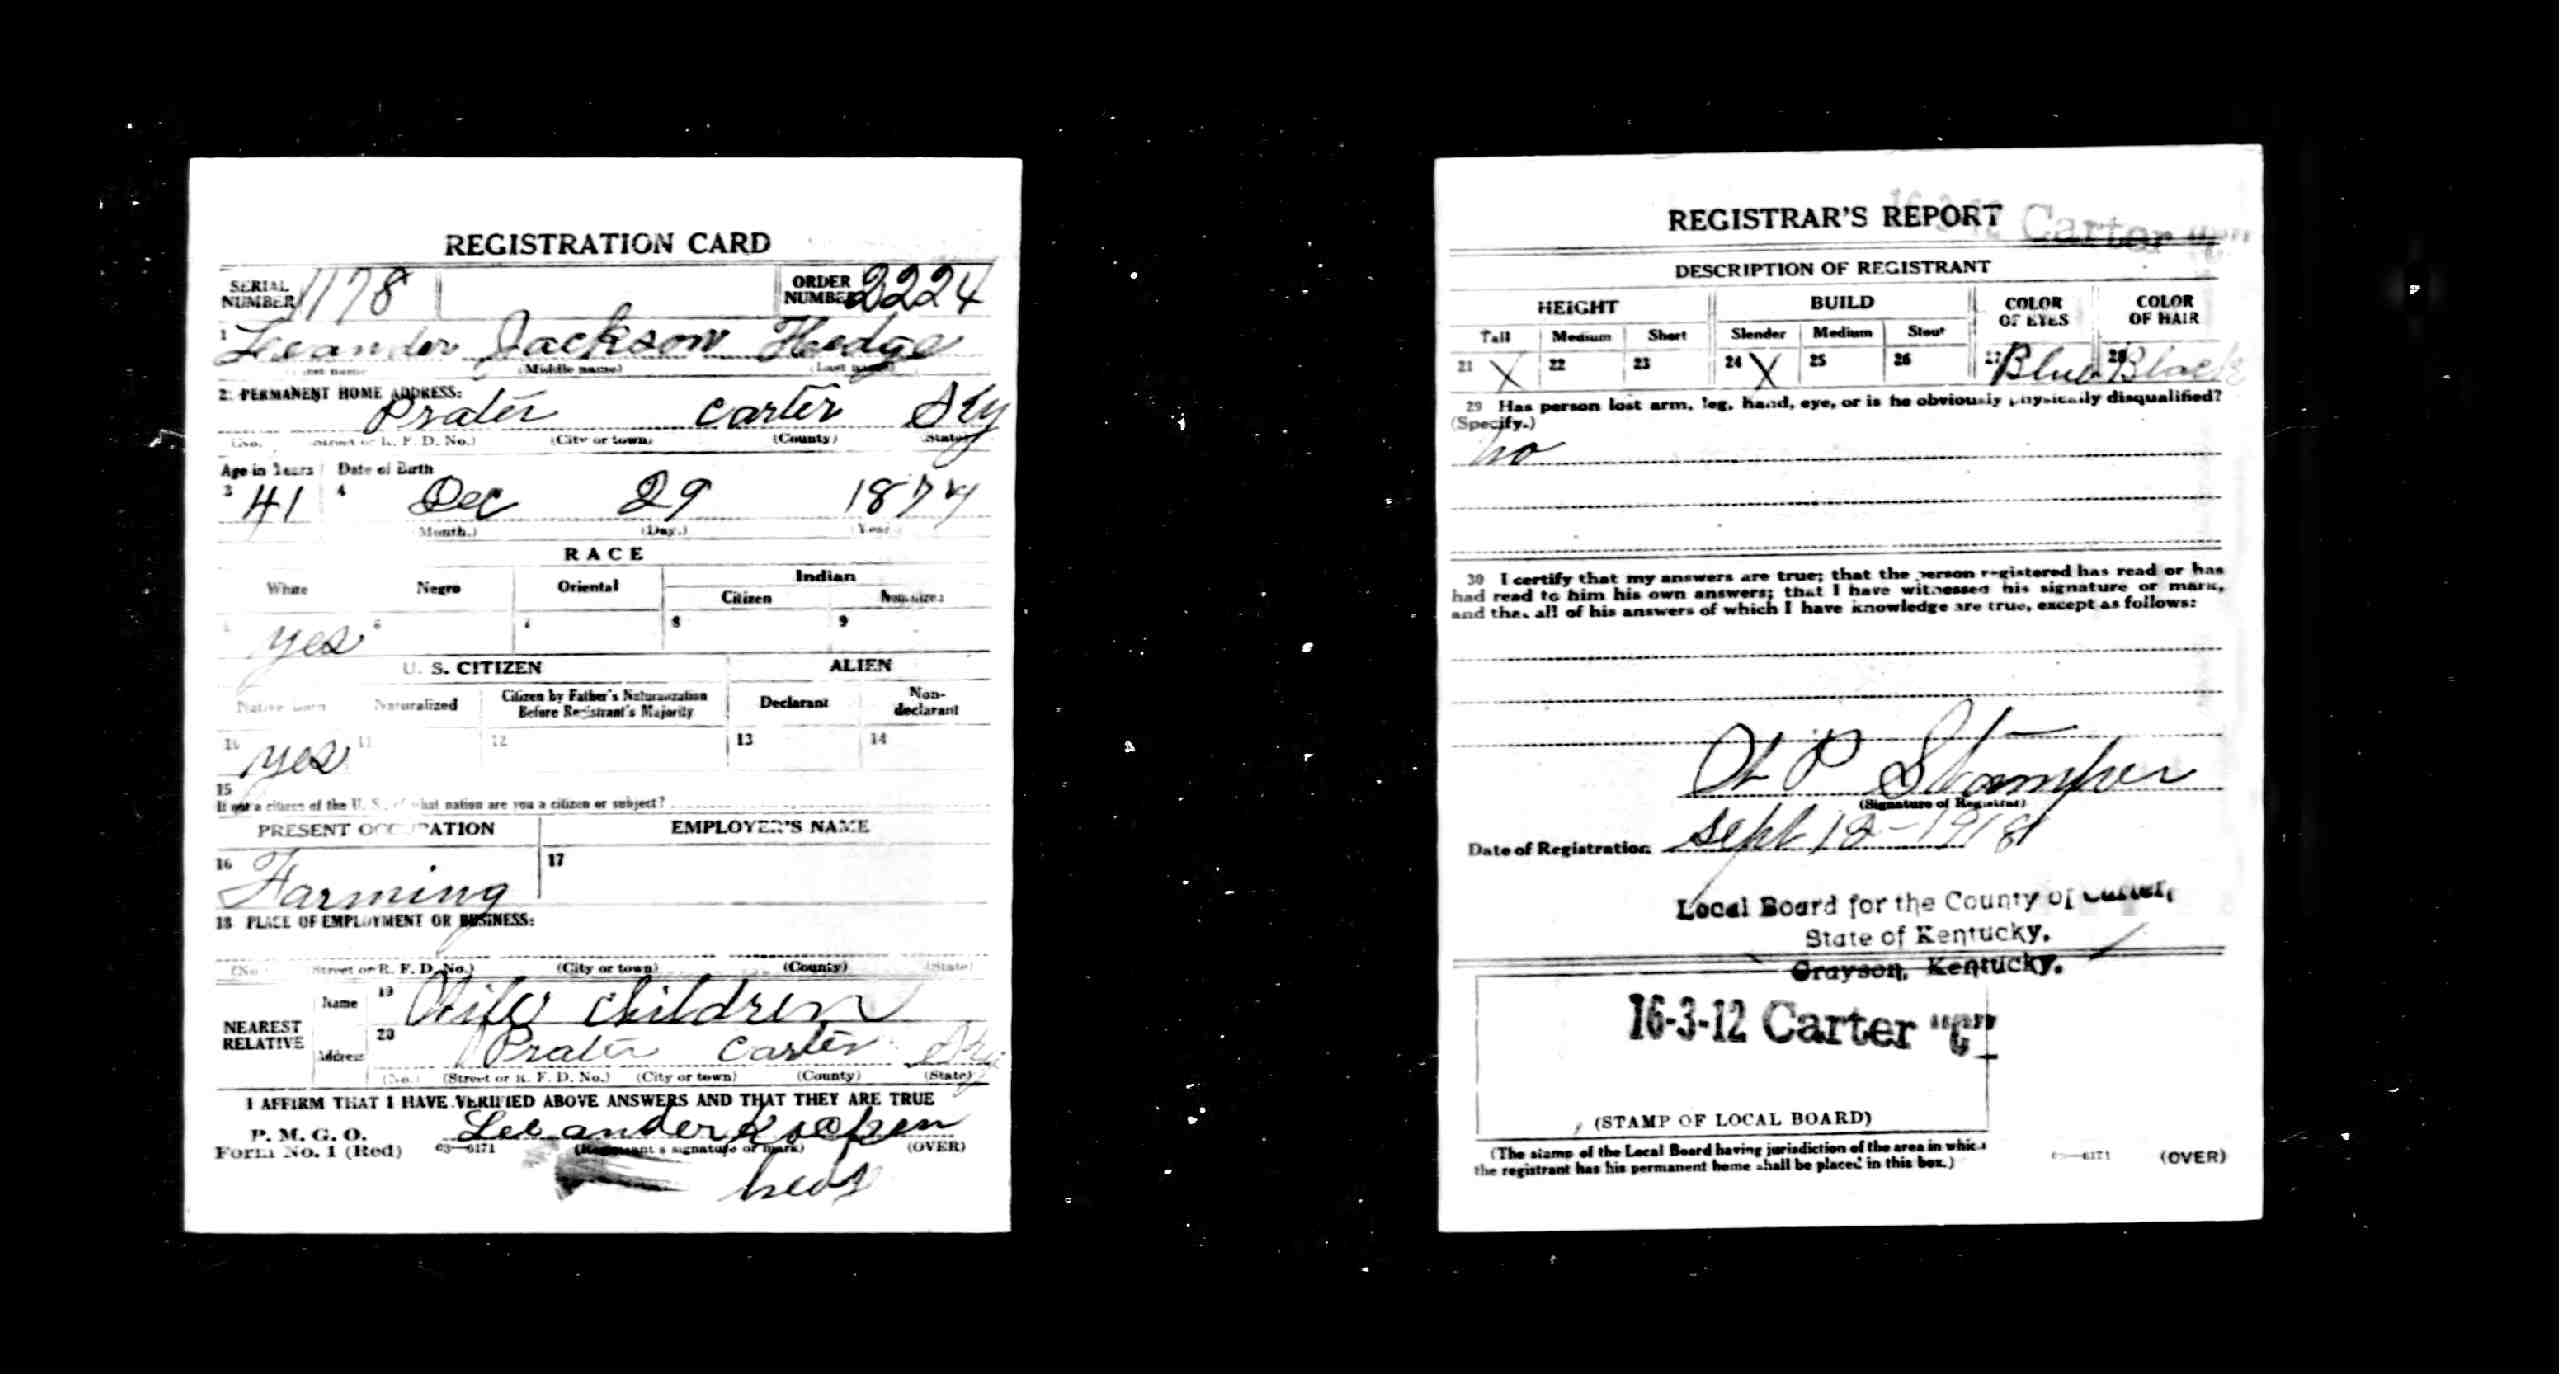 REGISTRATION CARD
SERIAL NUMBER 1178 ORDER NUMBER 2224
1 Leeander Jackson Hedge
(First name) (Middle name) (Last name)
2 PERMANENT HOME ADDRESS:
Prater Carter Ky
(No.) (Street or R. F. D. No.) (City or town) (County) (State)
Age in Years Date of Birth
3 41 4 Dec 29 1874
(Month.) (Day.) (Year.)
RACE
White Negro Oriental Indian
Citizen Noncitizen
5 yes 6 7 8 9
U. S. CITIZEN ALIEN
Native Born Naturalized Citizen by Father's Naturalization Before Registrant's Majority Declarant Non-declarant
10 yes 11 12 13 14
15
If not a citizen of the U. S., of what nation are you a citizen or subject?
PRESENT OCCUPATION EMPLOYER'S NAME
16 Farming 17
18 PLACE OF EMPLOYMENT OR BUSINESS:
(No.) (Street or R. F. D. No.) (City or town) (County) (State)
NEAREST RELATIVE Name 19 Wife children
Address 20 Prater Carter Ky
(No.) (Street or R. F. D. No.) (City or town) (County) (State)
I AFFIRM THAT I HAVE VERIFIED ABOVE ANSWERS AND THAT THEY ARE TRUE
P. M. G. O.
Form No. 1 (Red) 03—6171 (Registrant's signature or mark) (OVER)
REGISTRAR'S REPORT
16-3-12 Carter
DESCRIPTION OF REGISTRANT
HEIGHT BUILD COLOR OF EYES COLOR OF HAIR
Tall Medium Short Slender Medium Stout
21 X 22 23 24 X 25 26 27 Blue 28 Black
29 Has person lost arm, leg, hand, eye, or is he obviously physically disqualified?
(Specify.)
no
30 I certify that my answers are true; that the person registered has read or has
had read to him his own answers; that I have witnessed his signature or mark,
and that all of his answers of which I have knowledge are true, except as follows:
P Stamper
(Signature of Registrar)
Date of Registration Sept 12-1918
Local Board for the County of Carter,
State of Kentucky,
Grayson, Kentucky.
16-3-12 Carter "C"
(STAMP OF LOCAL BOARD)
(The stamp of the Local Board having jurisdiction of the area in which
the registrant has his permanent home shall be placed in this box.)
03—6171 (OVER)